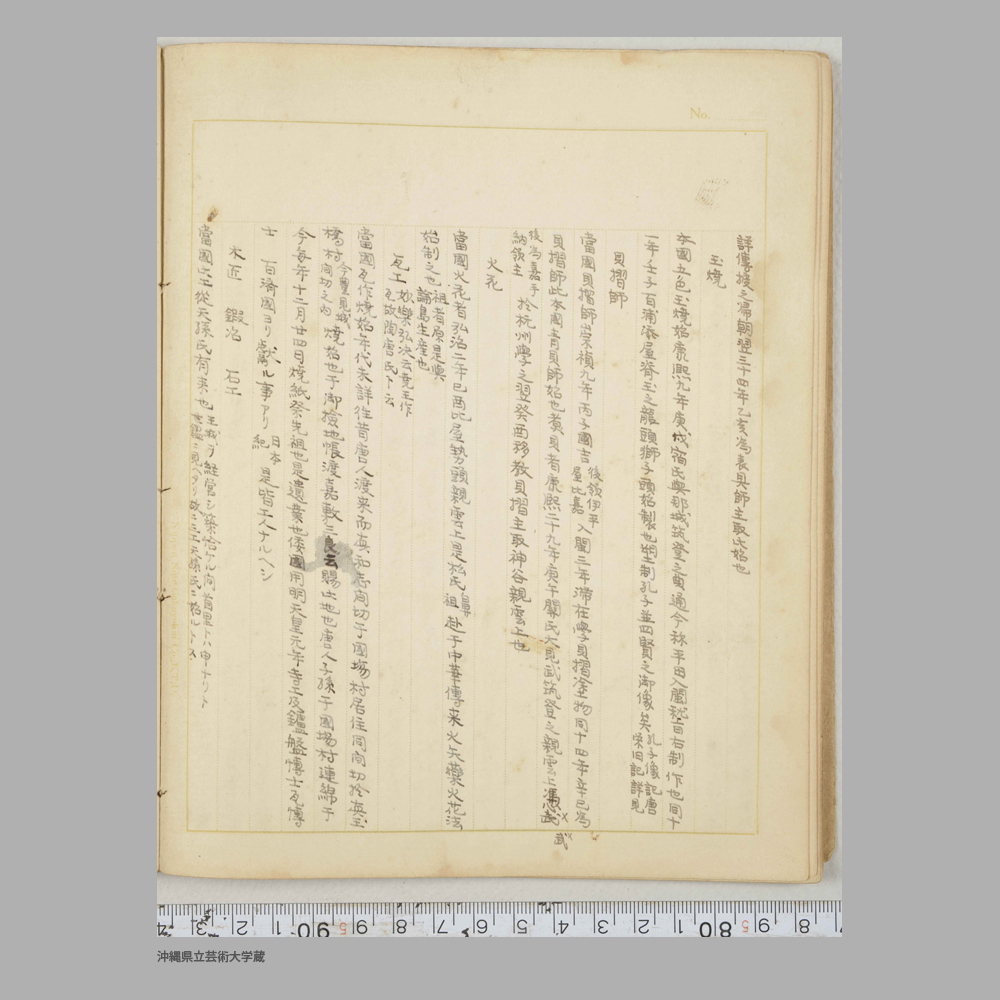 詳傳授之帰朝翌三十四年乙亥為表具師主取此始也
玉燒
本國五色玉燒始康熙九年庚戌宿氏與那城筑登之貞通今称平田入閩
右制作也同十
一年壬子百浦添屋脊玉之龍頭獅子頭始製也塑制孔子並四賢之御像矣
孔子像記唐
榮旧記詳見
貝摺師
當國貝摺師崇禎九年丙子國吉
後領伊平
屋比嘉
入閩三年滞在學貝摺塗物同十四年辛巳為
貝摺師此本國青貝師始也煮貝者康熙二十九年庚午關氏大見武筑登之親雲上憑武
武
後為嘉手
納領主
於杭州學之翌癸酉移教貝摺主取神谷親雲上也
火花
當國火花者弘治二年己酉比屋勢頭親雲上是松氏
祖
赴于中華傳来火矢藥火花法
始制之也
祖者原是奥
論島生産也
瓦工
妙樂弘决云堯王作
瓦故陶唐氏ト云
當國瓦作燒始年代未詳往昔唐人渡来而真和志间切于國場村居住同间切於真玉
橋村
今豊見城
间切之内
燒始也于御撿地帳渡嘉敷三良云賜出地也唐人子孫于國場村連綿于
今每年十二月廿四日燒紙祭先祖也是遺意也倭國用明天皇元年寺工及鑪盤博士瓦博
士 百濟國ヨリ献ル事アリ
日本
紀
是皆工人ナルヘシ
木匠 鍛冶 石工
當國此工從天孫氏有来也
王城ヲ経営シ築给ケル
首里ト
申ナリト
世鑑ニ見ヘタリ故ニ三工天孫氏ニ始ルト
No.
沖縄県立芸術大学蔵